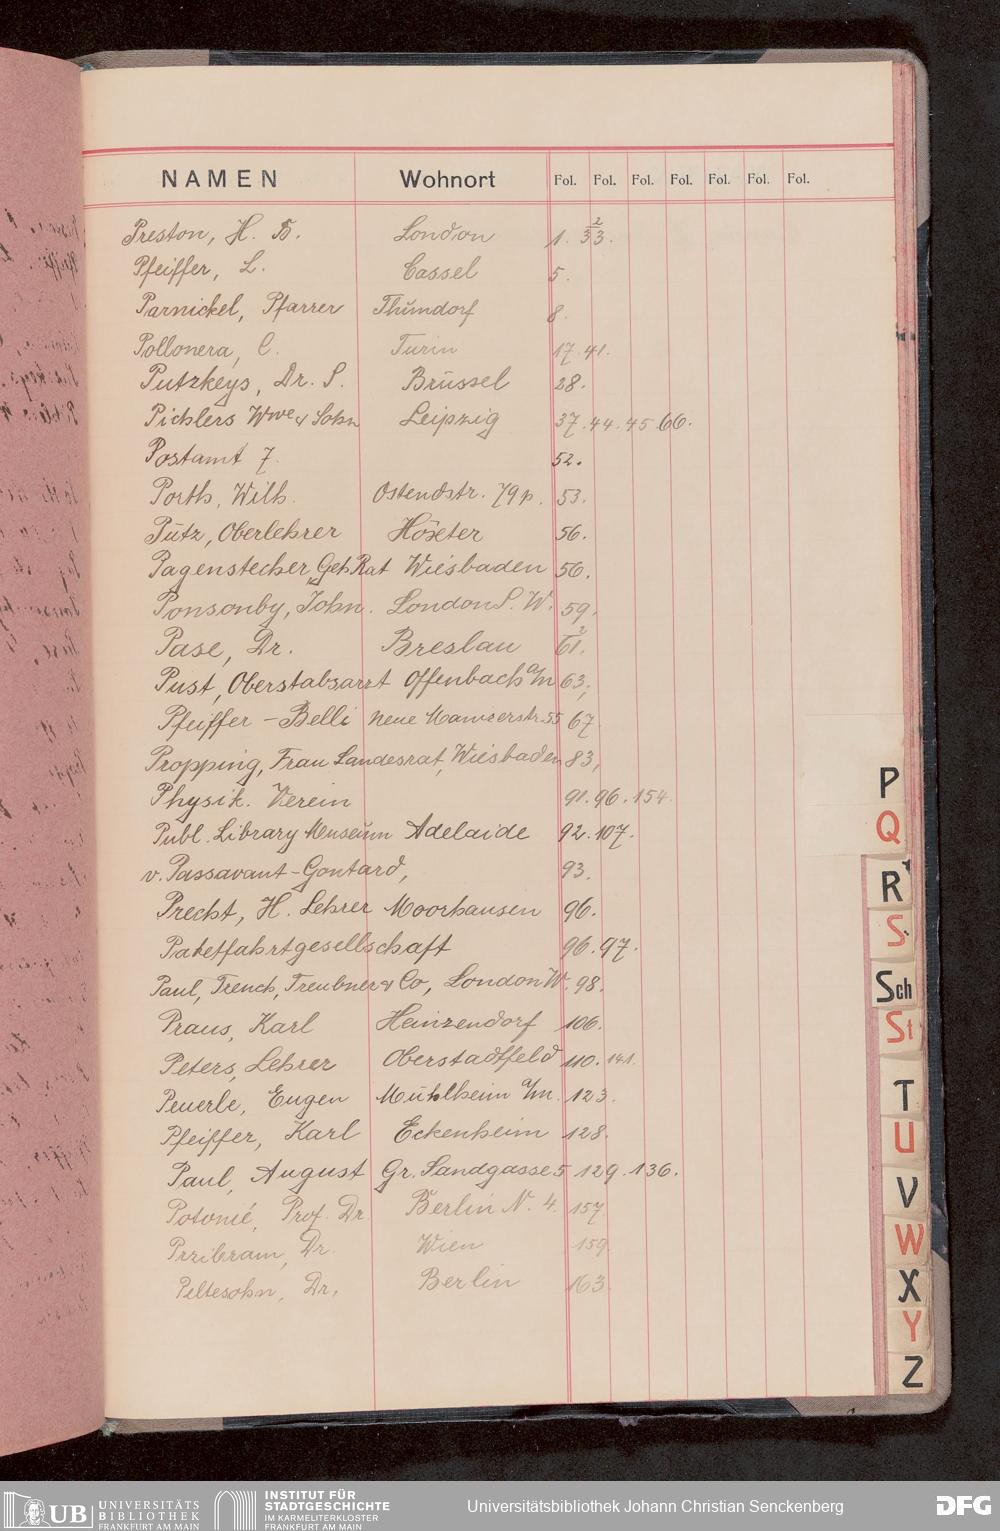 NAMEN Wohnort Fol. Fol. Fol. Fol. Fol. Fol. Fol.
Preston, H. B. London 1. 33. 2
Pfeiffer, L. Cassel 5.
Parnickel, Pfarrer Thŭndorf 8.
Pollonera, C. Turin 17. 41.
Putzkeys, Dr. S. Brüssel 28.
Pichlers Wwe & Sohn Leipzig 37. 44. 45 66.
Postamt 7. 52.
Porth, Wilh. Ostendstr. 79 p. 53.
Pütz, Oberlehrer Höxter 56.
Pagenstecher, Geh. Rat Wiesbaden 56.
Ponsonby, John. London S. W. 59.
Pase, Dr. Breslau 61. 2
Pust, Oberstabsarzt Offenbach a/m 63,
Pfeiffer-Belli Neue Mainzerstr. 55 67
Propping, Frau Landesrat, Wiesbaden 83,
Physik. Verein 91. 96. 154.
Publ. Library Museŭm Adelaide 92. 107.
v. Passavant-Gontard, 93.
Precht, H. Lehrer Moorhausen 96.
Paketfahrtgesellschaft 96. 97.
Paul, Trench, Treubner & Co, London W. 98.
Praus, Karl Heinzendorf 106.
Peters, Lehrer Oberstadtfeld 110. 141.
Peuerle, Eugen Mühlheim a/m. 123.
Pfeiffer, Karl Eckenheim 128.
Paul, August Gr. Sandgasse 5 129. 136.
Potonié, Prof. Dr. Berlin N. 4. 157
Przibram, Dr. Wien 159
Peltesohn, Dr. Berlin 163.
P
Q
R
S
Sch
St
T
U
V
W
X
Y
Z
UB UNIVERSITÄTS
BIBLIOTHEK
FRANKFURT AM MAIN
INSTITUT FÜR
STADTGESCHICHTE
IM KARMELITERKLOSTER
FRANKFURT AM MAIN
Universitätsbibliothek Johann Christian Senckenberg
DFG